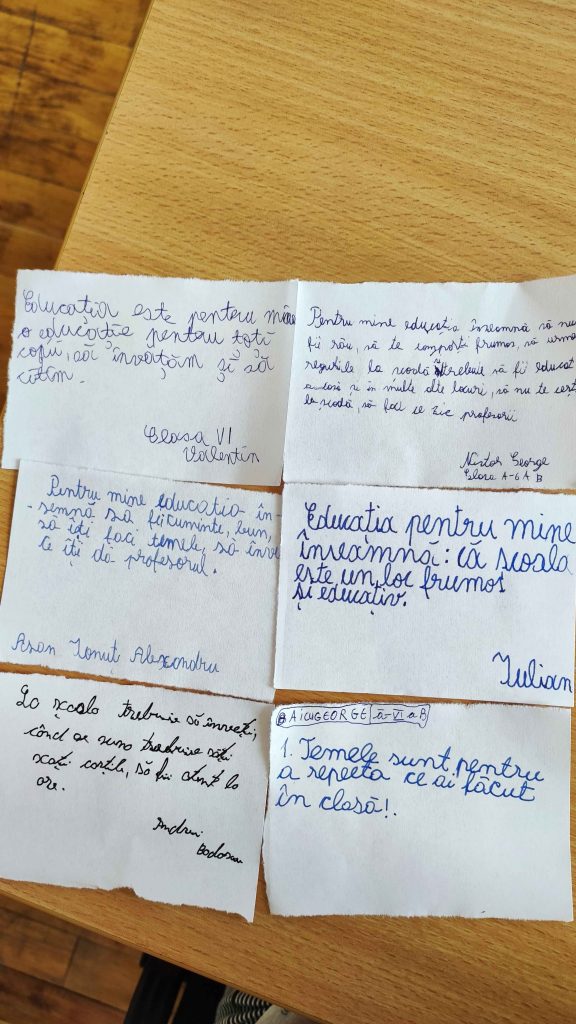 Educația este pentru mine
o educație pentru toți
copii, să învățăm și să
citim.
Clasa VI
Valentin
Pentru mine educația înseamnă să nu
fii rău, să te comporți frumos, să urma
regulile la școală trebuie să fii educat
acasă și în multe alte locuri, să nu te cerți
la școală, să faci ce zic profesorii
Nistor George
Clasa A-6 A B
Pentru mine educatia în-
-semnă să fii cuminte, bun,
să îți faci temele, să înve
ce îți dă profesorul.
Asan Ionuț Alexandru
Educația pentru mine
înseamnă: că scoala
este un loc frumos
și educativ.
Iulian
La școala trebuie să înveți,
când se suna trebuie să-ți
scoți cărțile, să fii atent la
ore.
Andrei
BAICUGEORGE a-VI a B
1. Temele sunt pentru
a repeeta ce ai făcut
în clasă!.